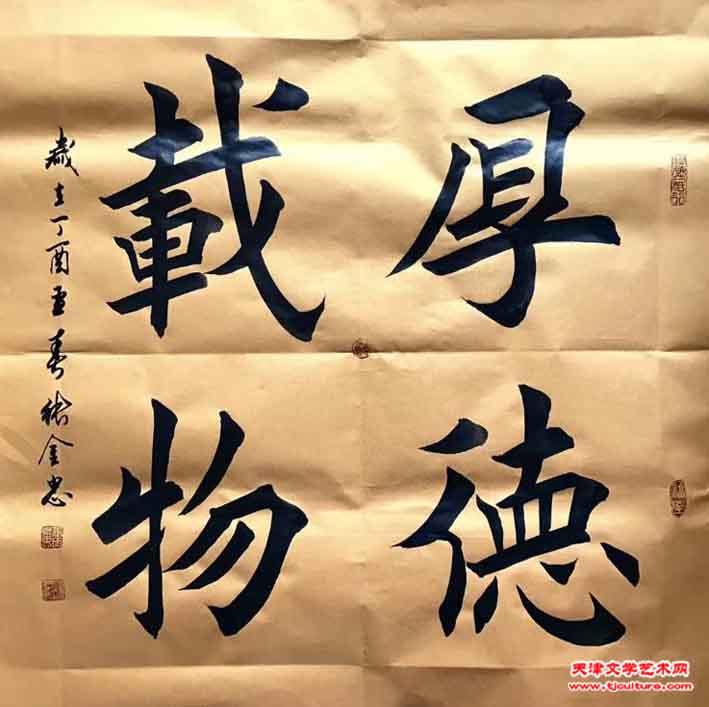 厚德
載物
歲在丁酉孟春張金忠
天津文学艺术网
www.tjculture.com